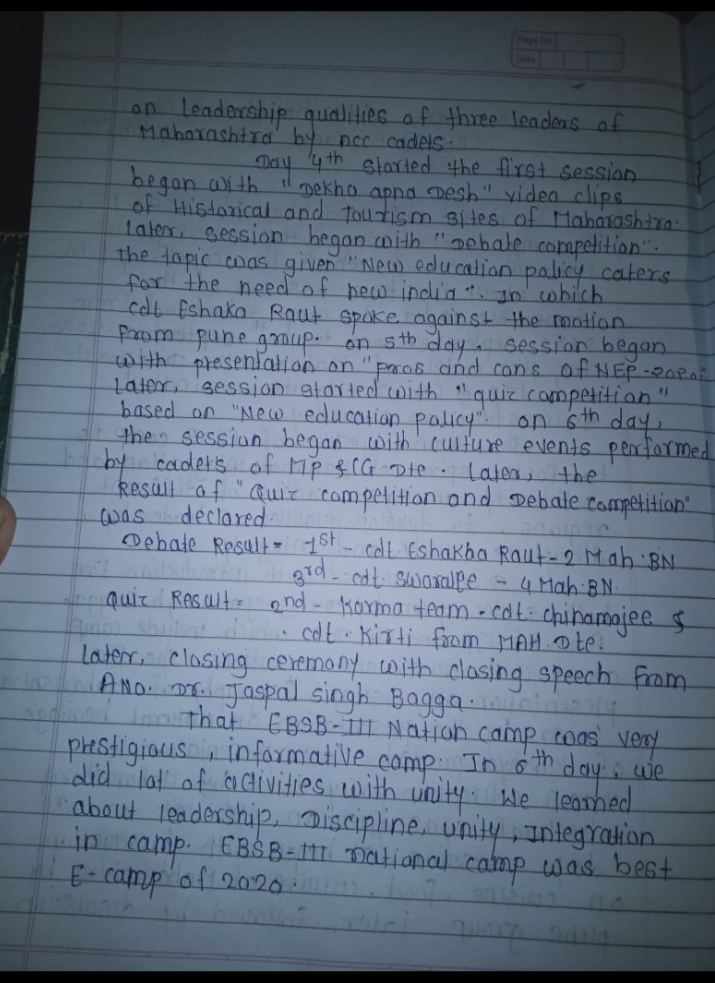 Page No.
Date
on Leadership qualities of three leaders of
Maharashtra by ncc cadets.
Day 4th started the first session
began with "Dekho apna Desh" video clips
of Historical and Tourism sites of Maharashtra.
Later, session began with "Debate competition".
the topic was given "New education policy caters
for the need of new india". In which
cdt Eshaka Raut spoke against the motion
from pune group. on 5th day, session began
with presentation on "pros and cons of NEP-2020."
Later, session started with "quiz competition"
based on "New education policy". on 6th day,
the session began with culture events performed
by cadets of MP & CG Dte. Later, the
Result of "Quiz competition and Debate competition"
was declared.
Debate Result - 1st - cdt Eshakha Raut - 2 Mah. BN
3rd - cdt. - 4 Mah. BN.
quiz Result - 2nd - Karma team - cdt. chinamajee &
cdt. Kirti from MAH. Dte.
Later, closing ceremony with closing speech from
ANO. Dr. Jaspal singh Bagga.
That EBSB-III Nation camp was very
prestigious, informative camp. In 6th day, we
did lot of activities with unity. We learned
about leadership, Discipline, unity, Integration
in camp. EBSB-III national camp was best
E-camp of 2020.